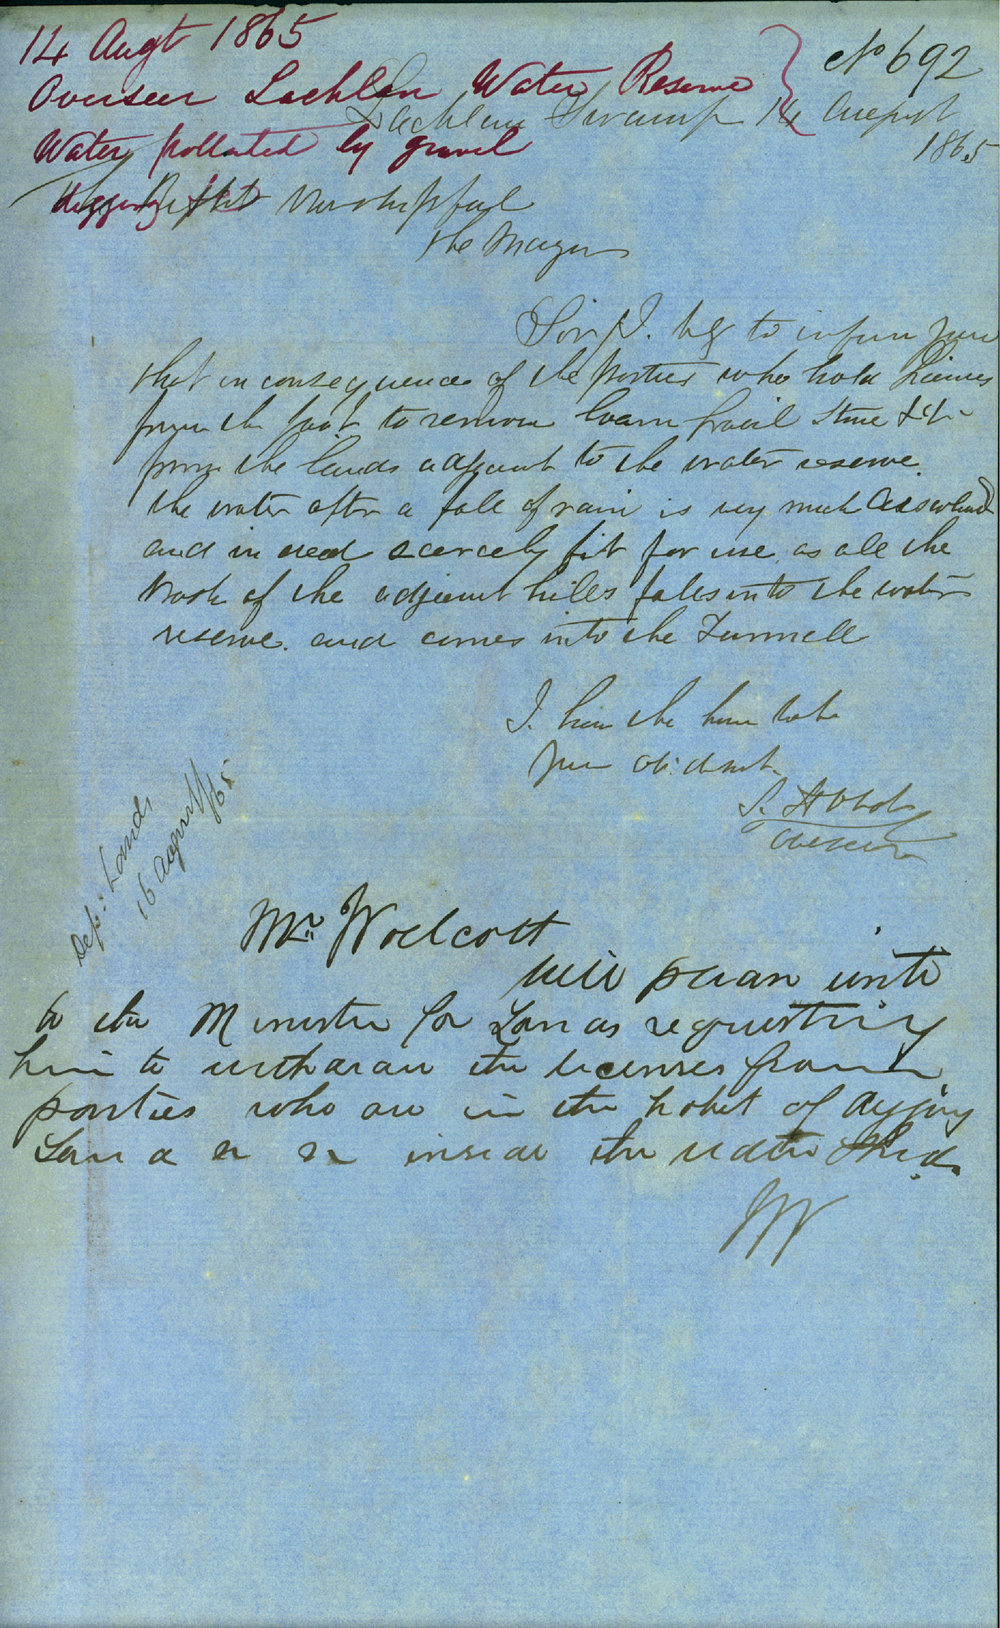 14 Augt 1865
Overseer Lachlan Water Reserve
Water polluted by gravel
digging
No 692
Lachlan Swamp 14 August
1865
Right Worshipful
the Mayor
Sir I. beg to inform you
that in consequence of the parties who hold licenses
from the to remove loam gravel stone &c
from the lands adjacent to the water reserve.
the water after a fall of rain is very much
and in deed scarcely fit for use as all the
wash of the adjacent hills fales into the water
reserve. and comes into the Tunnell
I. have the honor to be
your obedient
Overseer
Dep: Lands
16 August /65
Mr Wolcott
will please write
to the Minister for Lands requesting
him to withdraw the licenses from
parties who are in the habit of digging
inside the water